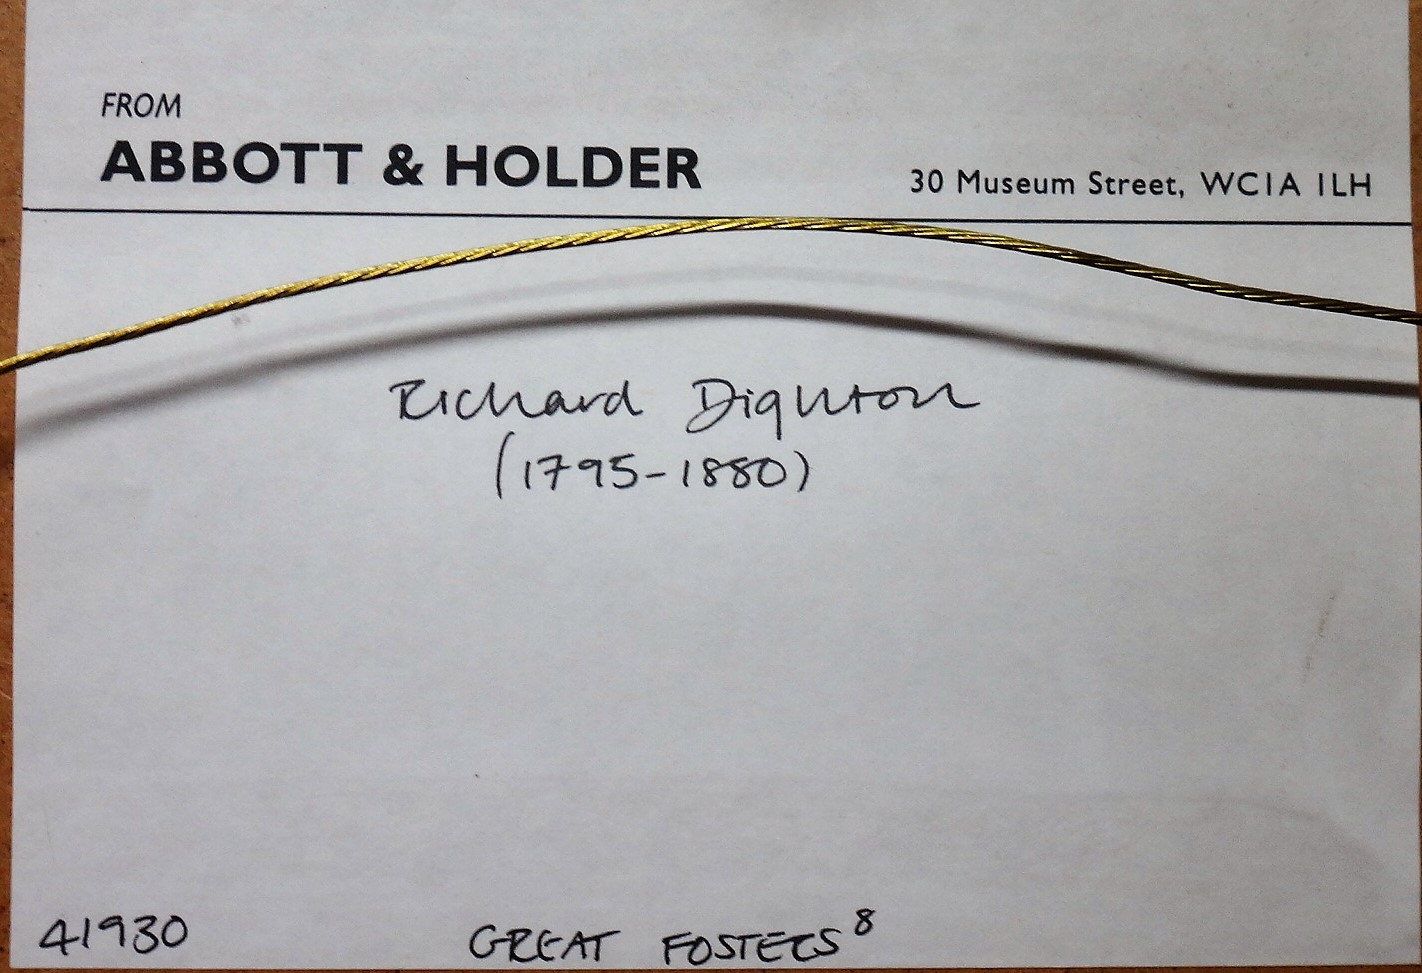 FROM
ABBOTT & HOLDER
30 Museum Street, WC1A 1LH
Richard Dighton
(1795-1880)
41930
GREAT FOSTERS 8